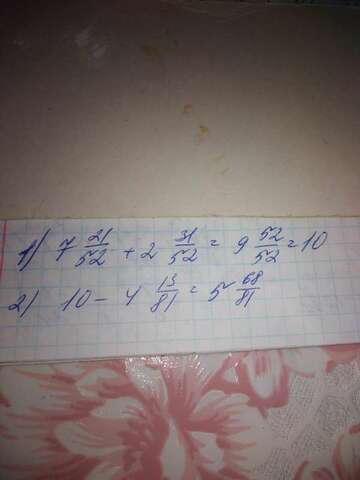 1) 7 21/52 + 2 31/52 = 9 52/52 = 10
2) 10 - 4 13/81 = 5 68/81